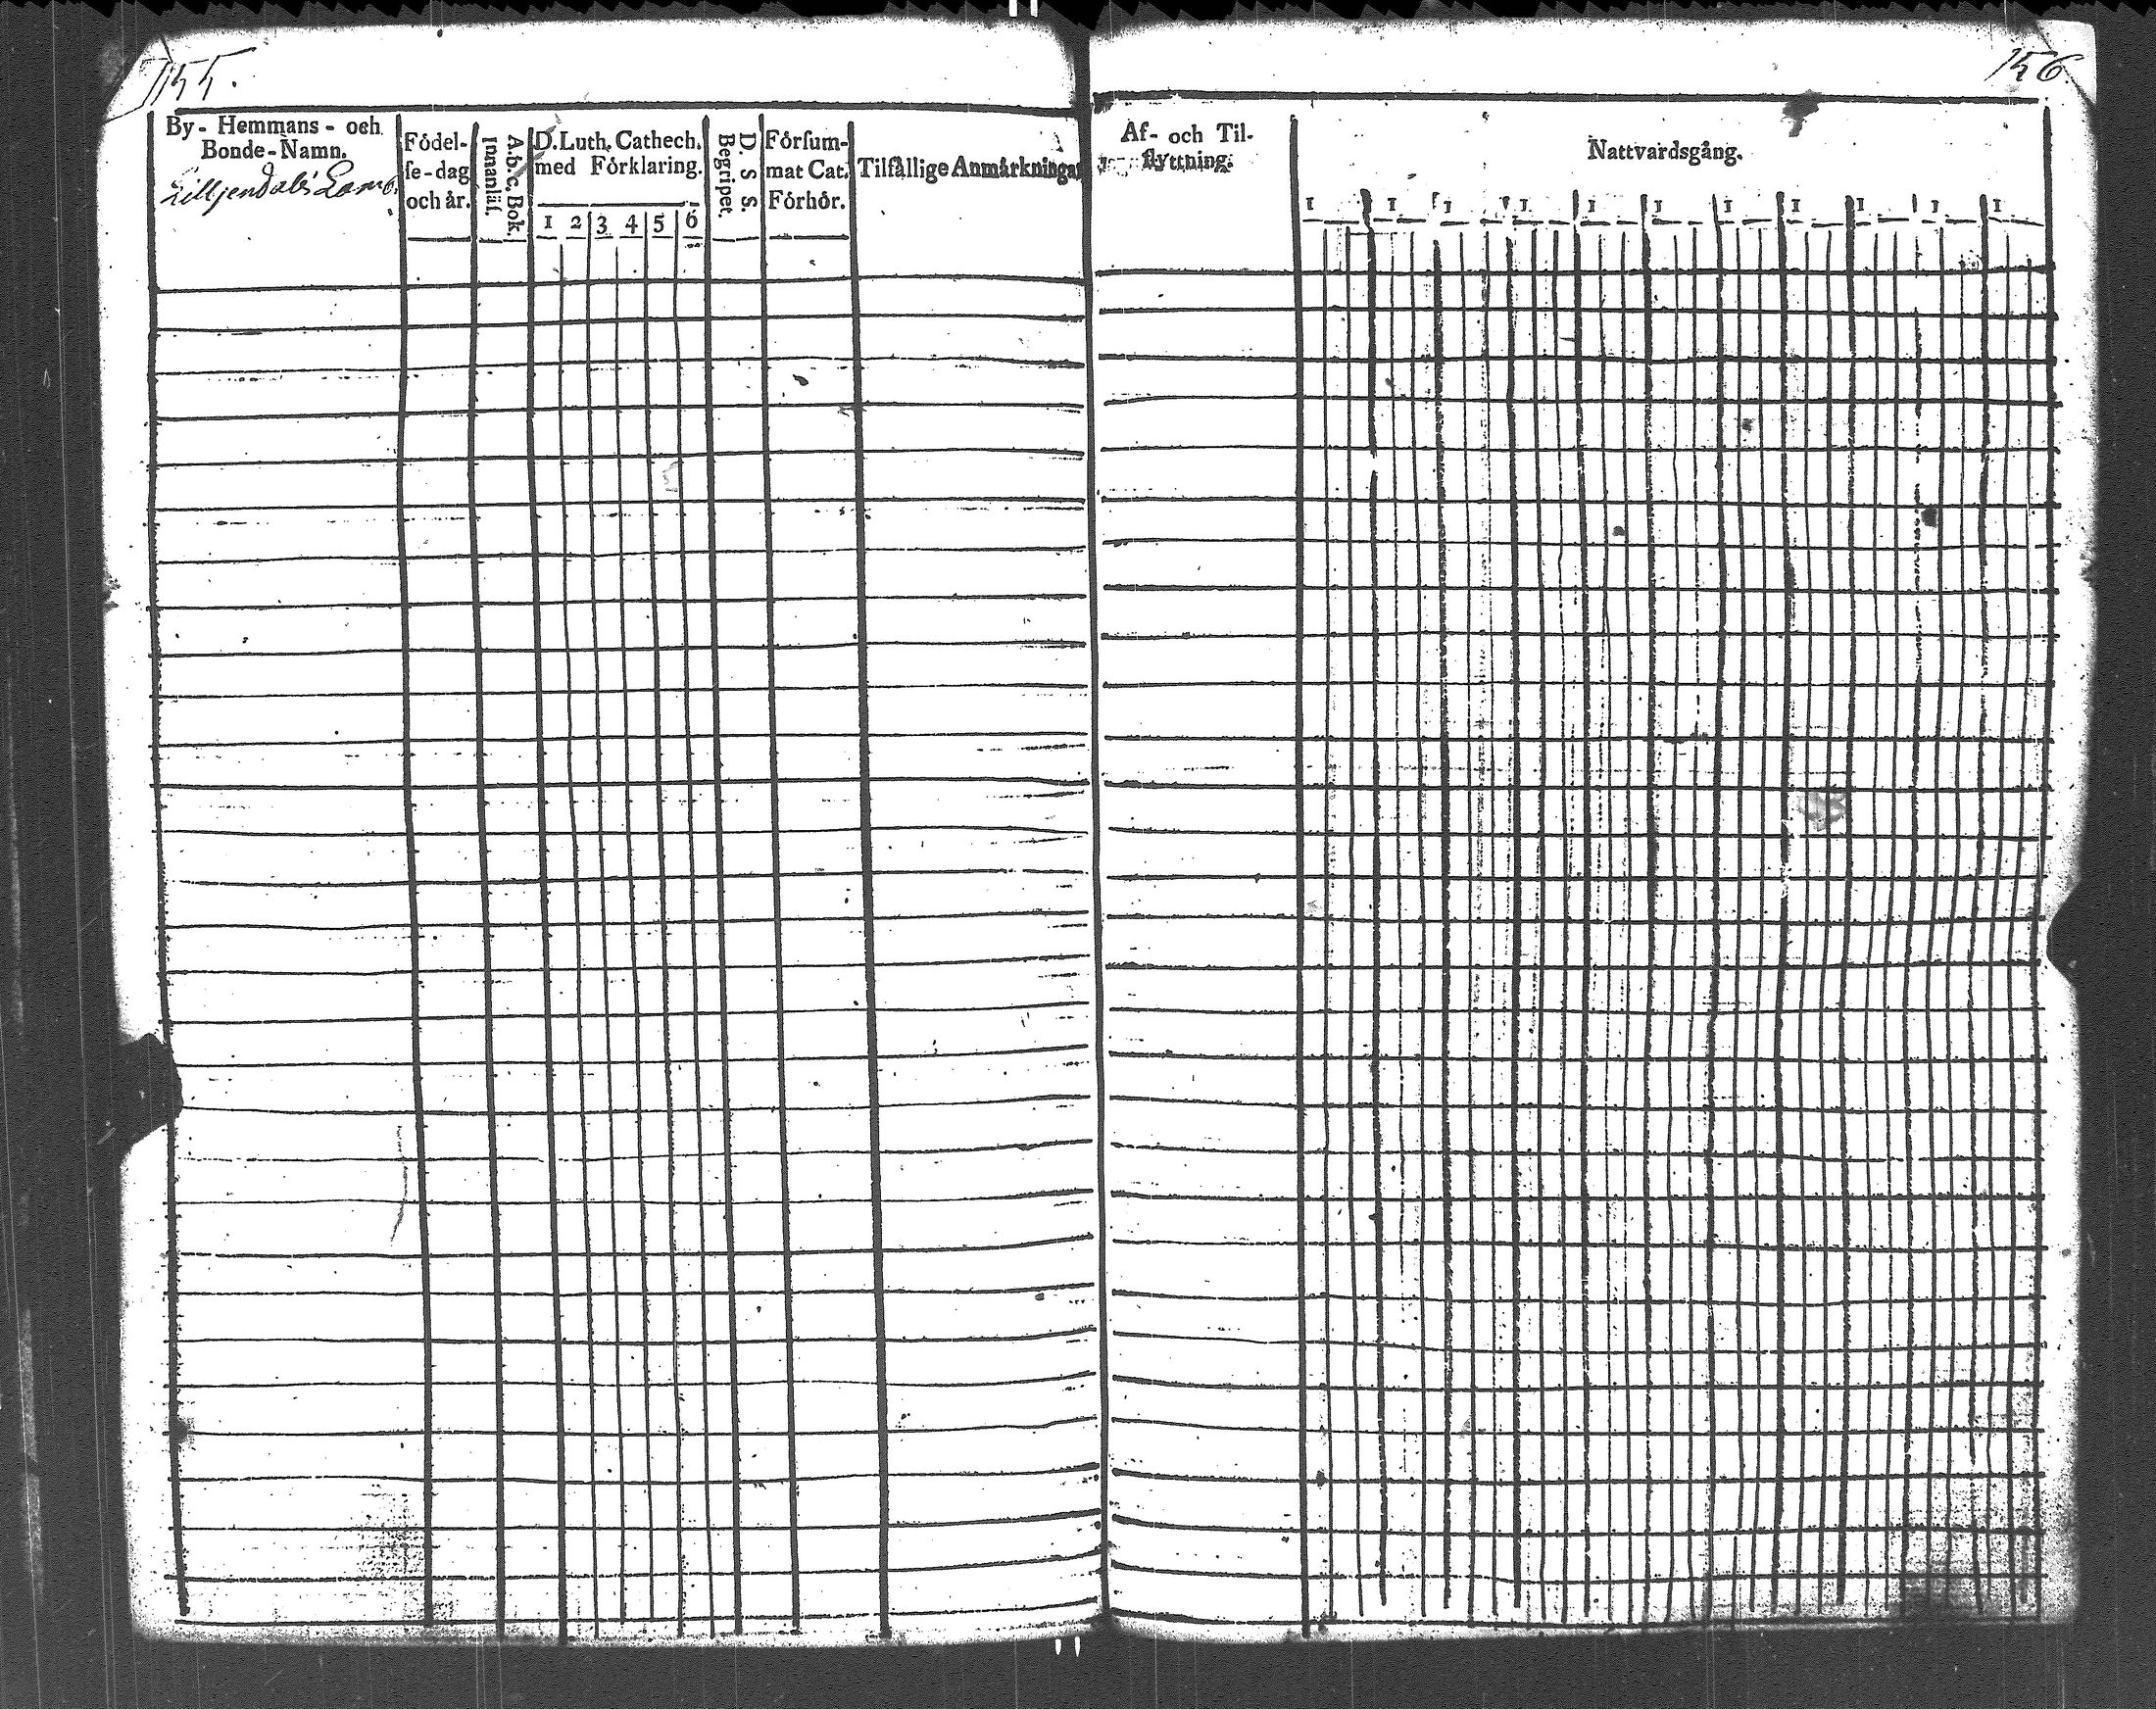 155.
By- Hemmans- och
Bonde-Namn.
Lilljendals
Födel-
ſe-dag
och år.
A.b.c. Bok.
Innanläſ.
D. Luth. Cathech.
med Förklaring.
1 2 3 4 5 6
D. S S.
Begripet.
Förſum-
mat Cat.
Förhör.
Tilfällige Anmärkningar
156
Af- och Til-
flyttning.
Nattvardsgång.
1 1 1 1 1 1 1 1 1 1 1